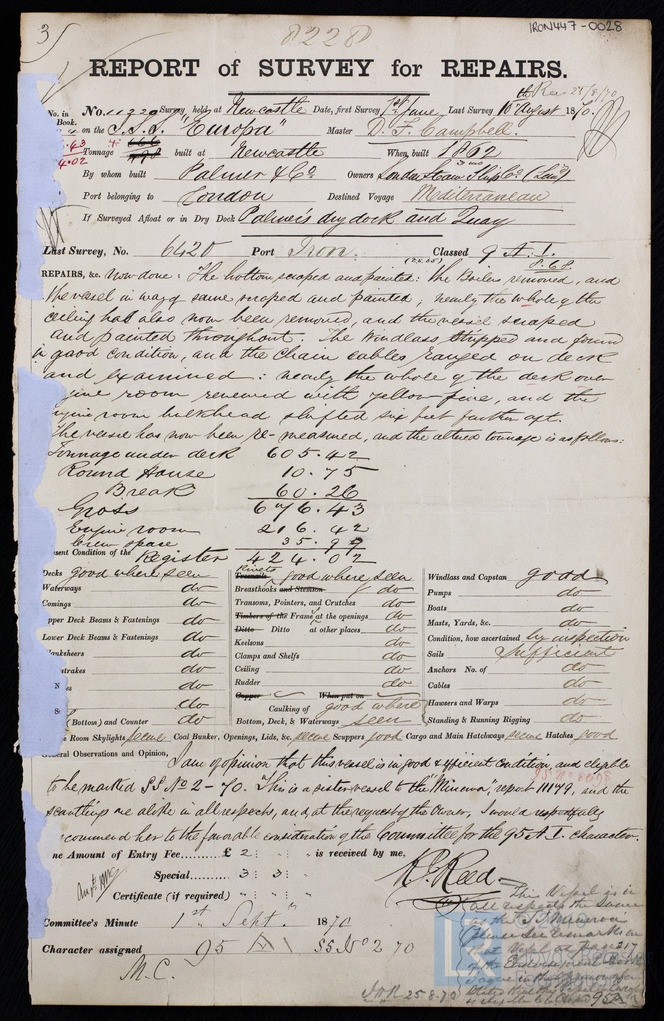 3
8228
IRON447-0028
REPORT of SURVEY for REPAIRS.
Rec 24/8/70
No. in Book. No. 11220 Survey held at Newcastle Date, first Survey 1st June Last Survey 16th August 1870.
on the S.S. "Europa" Master D. F. Campbell.
.43
4.02 Tonnage built at Newcastle When built 1862
By whom built Palmer & Co Owners London Steam Ship Co (Lim)
Port belonging to London Destined Voyage Mediterranean
If Surveyed Afloat or in Dry Dock Palmer's dry dock and Quay
Last Survey, No. 6420 Port Iron. Classed 9 A.1.
8.68
REPAIRS, &c. Now done: The bottom scraped and painted: the Boilers removed, and
the vessel in way of same scraped and painted, nearly the whole of the
ceiling has also now been removed, and the vessel scraped
and painted throughout. The Windlass stripped and found
in good condition, and the chain cables ranged on deck
and examined: nearly the whole of the deck over
gine room renewed with yellow pine, and the
engine room bulkhead shifted six feet further aft.
The vessel has now been re-measured, and the altered tonnage is as follows:
Tonnage under deck 605.42
Round House 10.75
Break 60.26
Gross 676.43
Engine room 216.42
Crew space 35.99
sent Condition of the Register 424.02
Decks good where seen
Waterways do
Comings do
pper Deck Beams & Fastenings do
Lower Deck Beams & Fastenings do
lanksheers do
strakes do
do
do
(Bottom) and Counter do
Rivets
Treenails good where seen
Breasthooks and Stemson do
Transoms, Pointers, and Crutches do
Timbers of the Frame at the openings do
Ditto Ditto at other places do
Keelsons do
Clamps and Shelfs do
Ceiling do
Rudder do
Copper When put on
Caulking of good where
Bottom, Deck, & Waterways seen
Windlass and Capstan good
Pumps do
Boats do
Masts, Yards, &c. do
Condition, how ascertained by inspection
Sails Sufficient
Anchors No. of do
Cables do
Hawsers and Warps do
Standing & Running Rigging do
Room Skylights secure Coal Bunker, Openings, Lids, &c. secure Scuppers good Cargo and Main Hatchways secure Hatches good
General Observations and Opinion, I am of opinion that this vessel is in good & efficient condition, and eligible
to be marked SS No 2 - 70. This is a sister vessel to the "Minerva", report 11179, and the
scantlings are alike in all respects, and, at the request of the Owner, I would respectfully
recommend her to the favorable consideration of the Committee for the 95 A.1. character.
he Amount of Entry Fee......... £ 2 : : is received by me,
Special......... 3 : 3 :
Certificate (if required)
Committee's Minute 1st Sept. 1870
Character assigned 95 A SS No 2 70
M.C.
This Vessel is in
all respects the same
as the SS Minerva
please see remarks on
that Vessel at page 217
of the Endorsement Book
95A
25.8.70